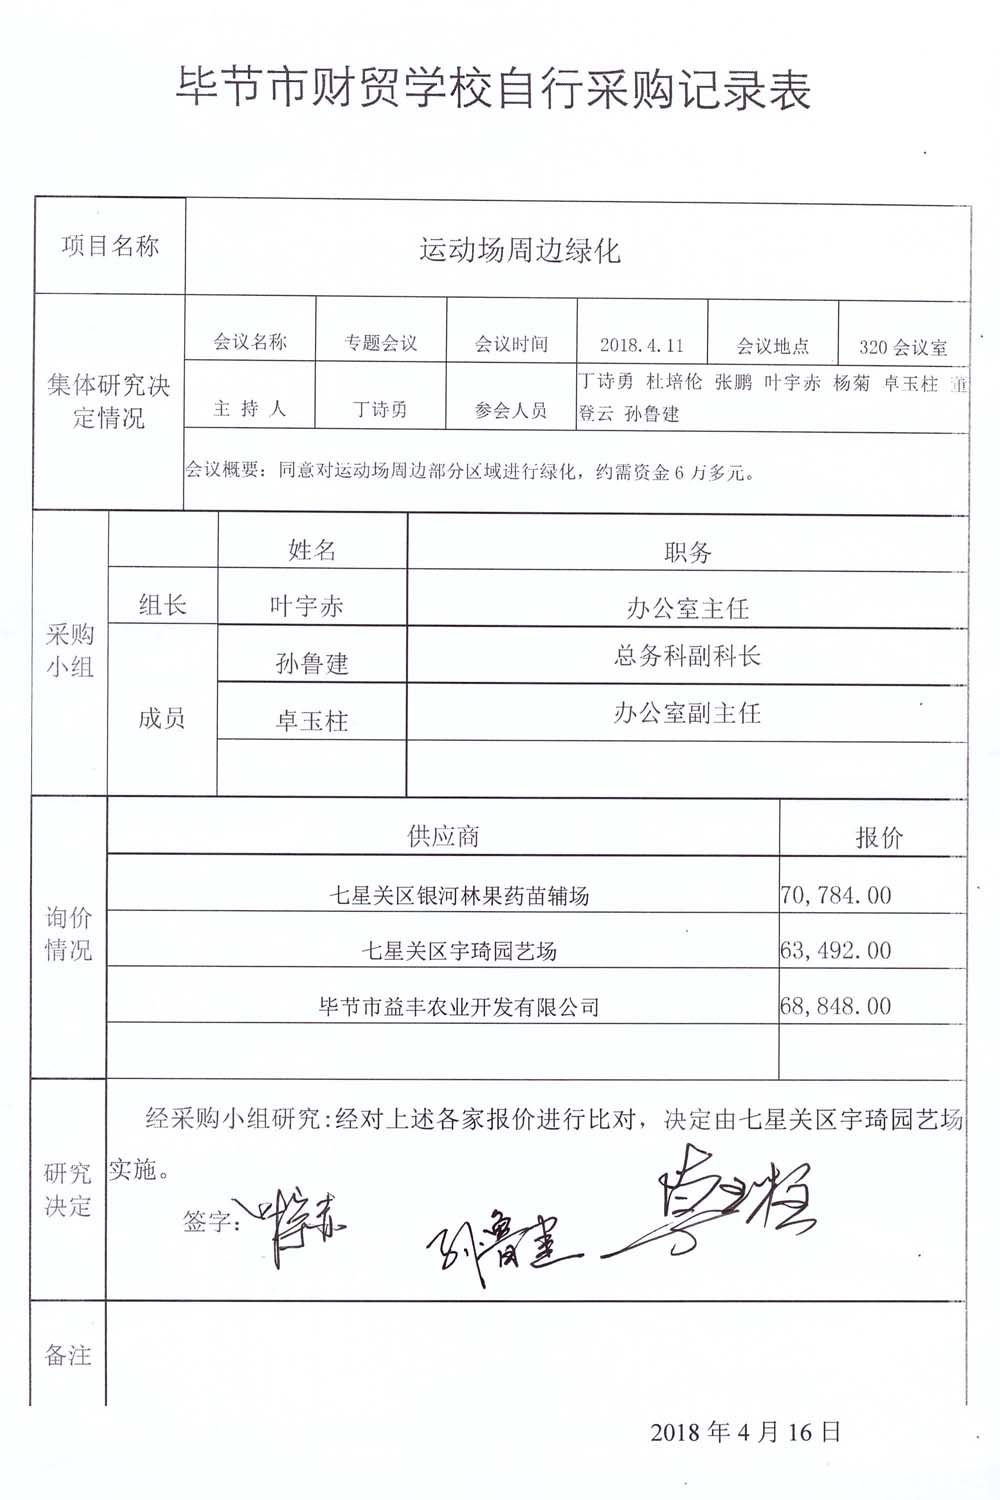 毕节市财贸学校自行采购记录表
项目名称 运动场周边绿化
集体研究决定情况
会议名称 专题会议 会议时间 2018.4.11 会议地点 320会议室
主 持 人 丁诗勇 参会人员 丁诗勇 杜培伦 张鹏 叶宇赤 杨菊 卓玉柱 董
登云 孙鲁建
会议概要：同意对运动场周边部分区域进行绿化，约需资金6万多元。
采购
小组
姓名 职务
组长 叶宇赤 办公室主任
成员
孙鲁建 总务科副科长
卓玉柱 办公室副主任
询价
情况
供应商 报价
七星关区银河林果药苗辅场 70,784.00
七星关区宇琦园艺场 63,492.00
毕节市益丰农业开发有限公司 68,848.00
研究
决定
经采购小组研究:经对上述各家报价进行比对，决定由七星关区宇琦园艺场
实施。
签字: 叶宇赤 孙鲁建 卓玉柱
备注
2018年4月16日